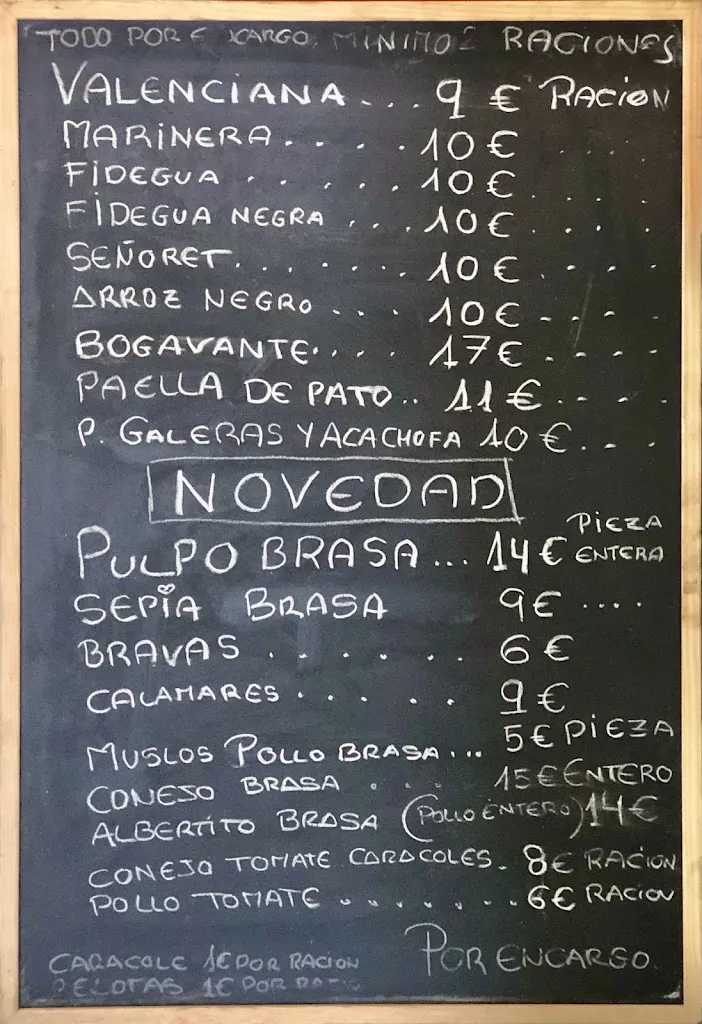 TODO POR ECARGO, MINIMO 2 RACIONES
VALENCIANA... 9 € RACION
MARINERA..... 10 € ....
FIDEGUA ..... 10 € ....
FIDEGUA NEGRA ... 10 € ....
SEÑORET....... 10 € ....
ARROZ NEGRO ... 10 € ....
BOGAVANTE.... 17 € ....
PAELLA DE PATO.. 11 € ....
P. GALERAS Y ACACHOFA 10 € ...
NOVEDAD
PULPO BRASA... 14 € PIEZA ENTERA
SEPIA BRASA 9 € ....
BRAVAS ...... 6 €
CALAMARES ..... 9 €
MUSLOS POLLO BRASA... 5 € PIEZA
CONEJO BRASA .. 15 € ENTERO
ALBERTITO BRASA (POLLO ENTERO) 14 €
CONEJO TOMATE CARACOLES. 8 € RACION
POLLO TOMATE ....... 6 € RACION
POR ENCARGO.
CARACOLE 1€ POR RACION
PELOTAS 1€ POR